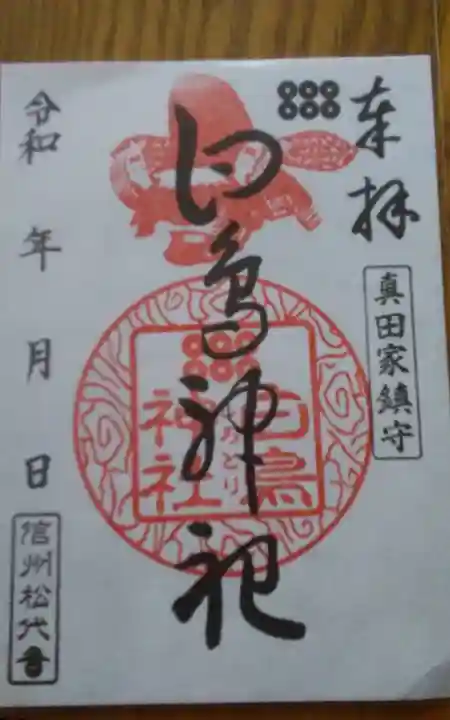 奉拝
真田家鎮守
白鳥神社
白鳥
神社
しらとり
令和 年 月 日
信州松代